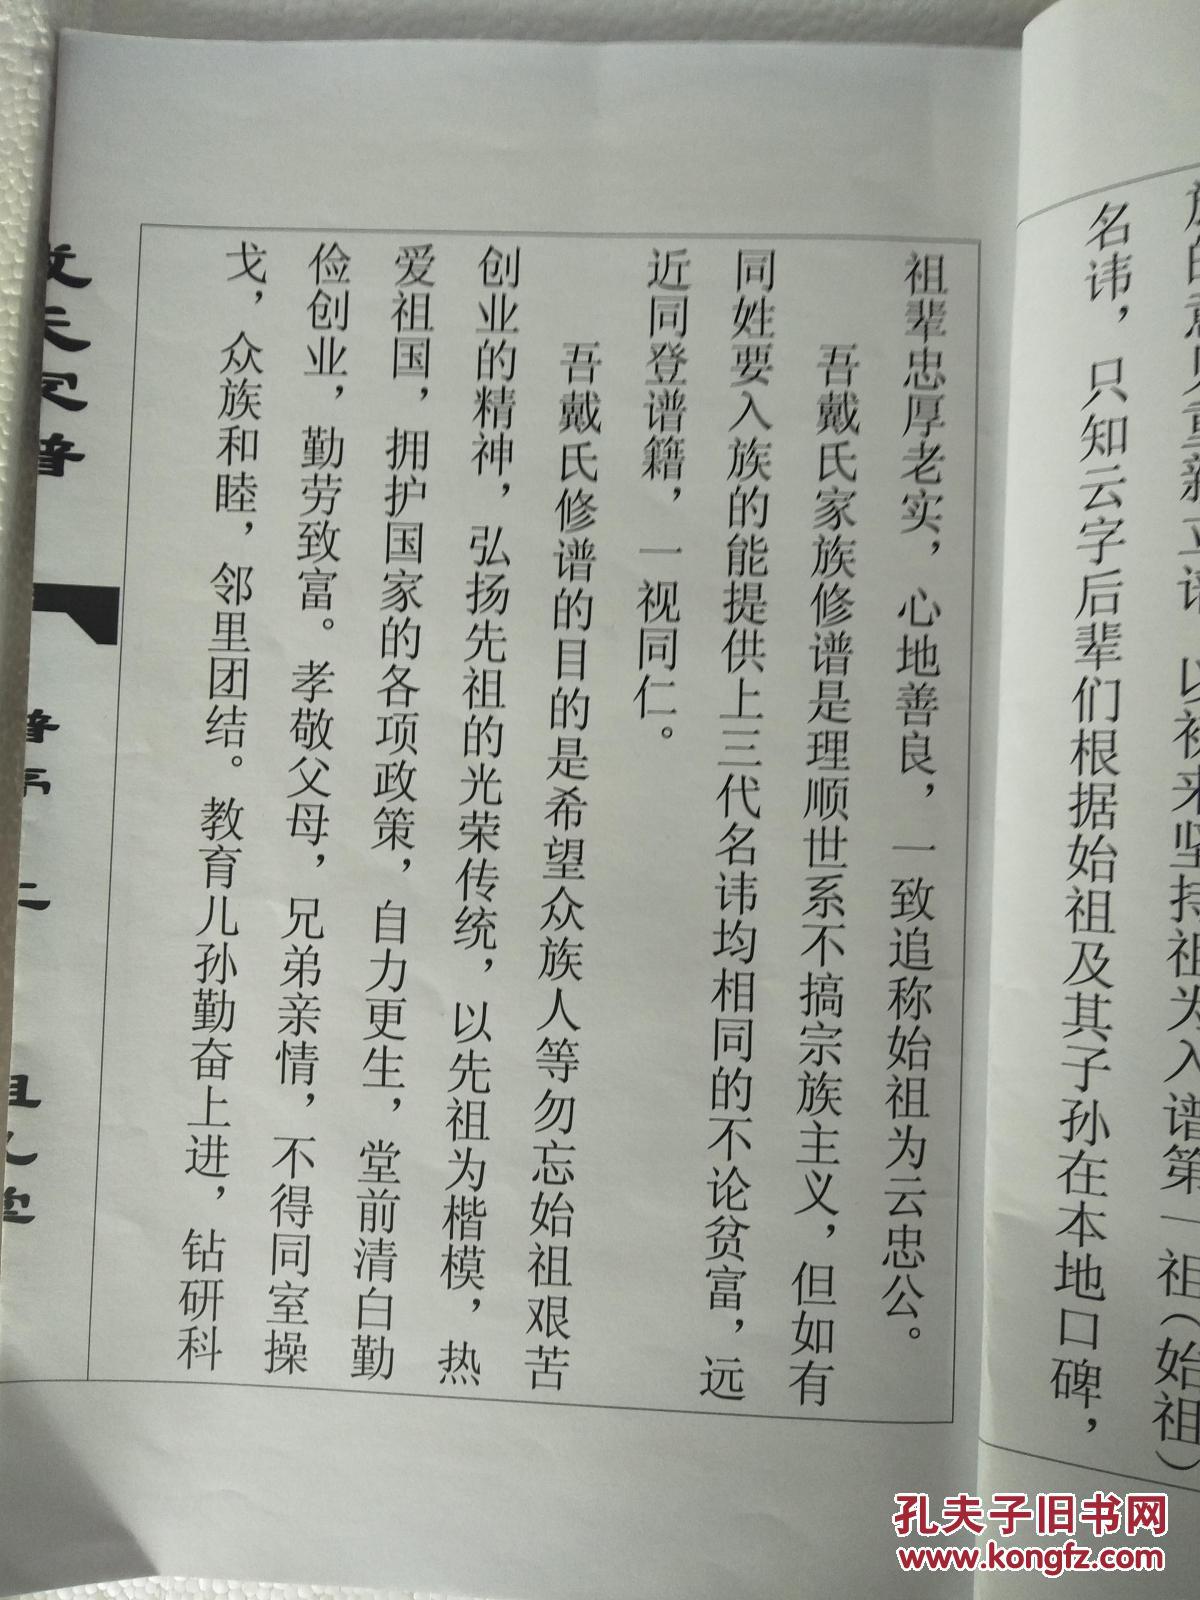 名讳，只知云字后辈们根据始祖及其子孙在本地口碑，
祖辈忠厚老实，心地善良，一致追称始祖为云忠公。
吾戴氏家族修谱是理顺世系不搞宗族主义，但如有
同姓要入族的能提供上三代名讳均相同的不论贫富，远
近同登谱籍，一视同仁。
吾戴氏修谱的目的是希望众族人等勿忘始祖艰苦
创业的精神，弘扬先祖的光荣传统，以先祖为楷模，热
爱祖国，拥护国家的各项政策，自力更生，堂前清白勤
俭创业，勤劳致富。孝敬父母，兄弟亲情，不得同室操
戈，众族和睦，邻里团结。教育儿孙勤奋上进，钻研科
孔夫子旧书网
www.kongfz.com